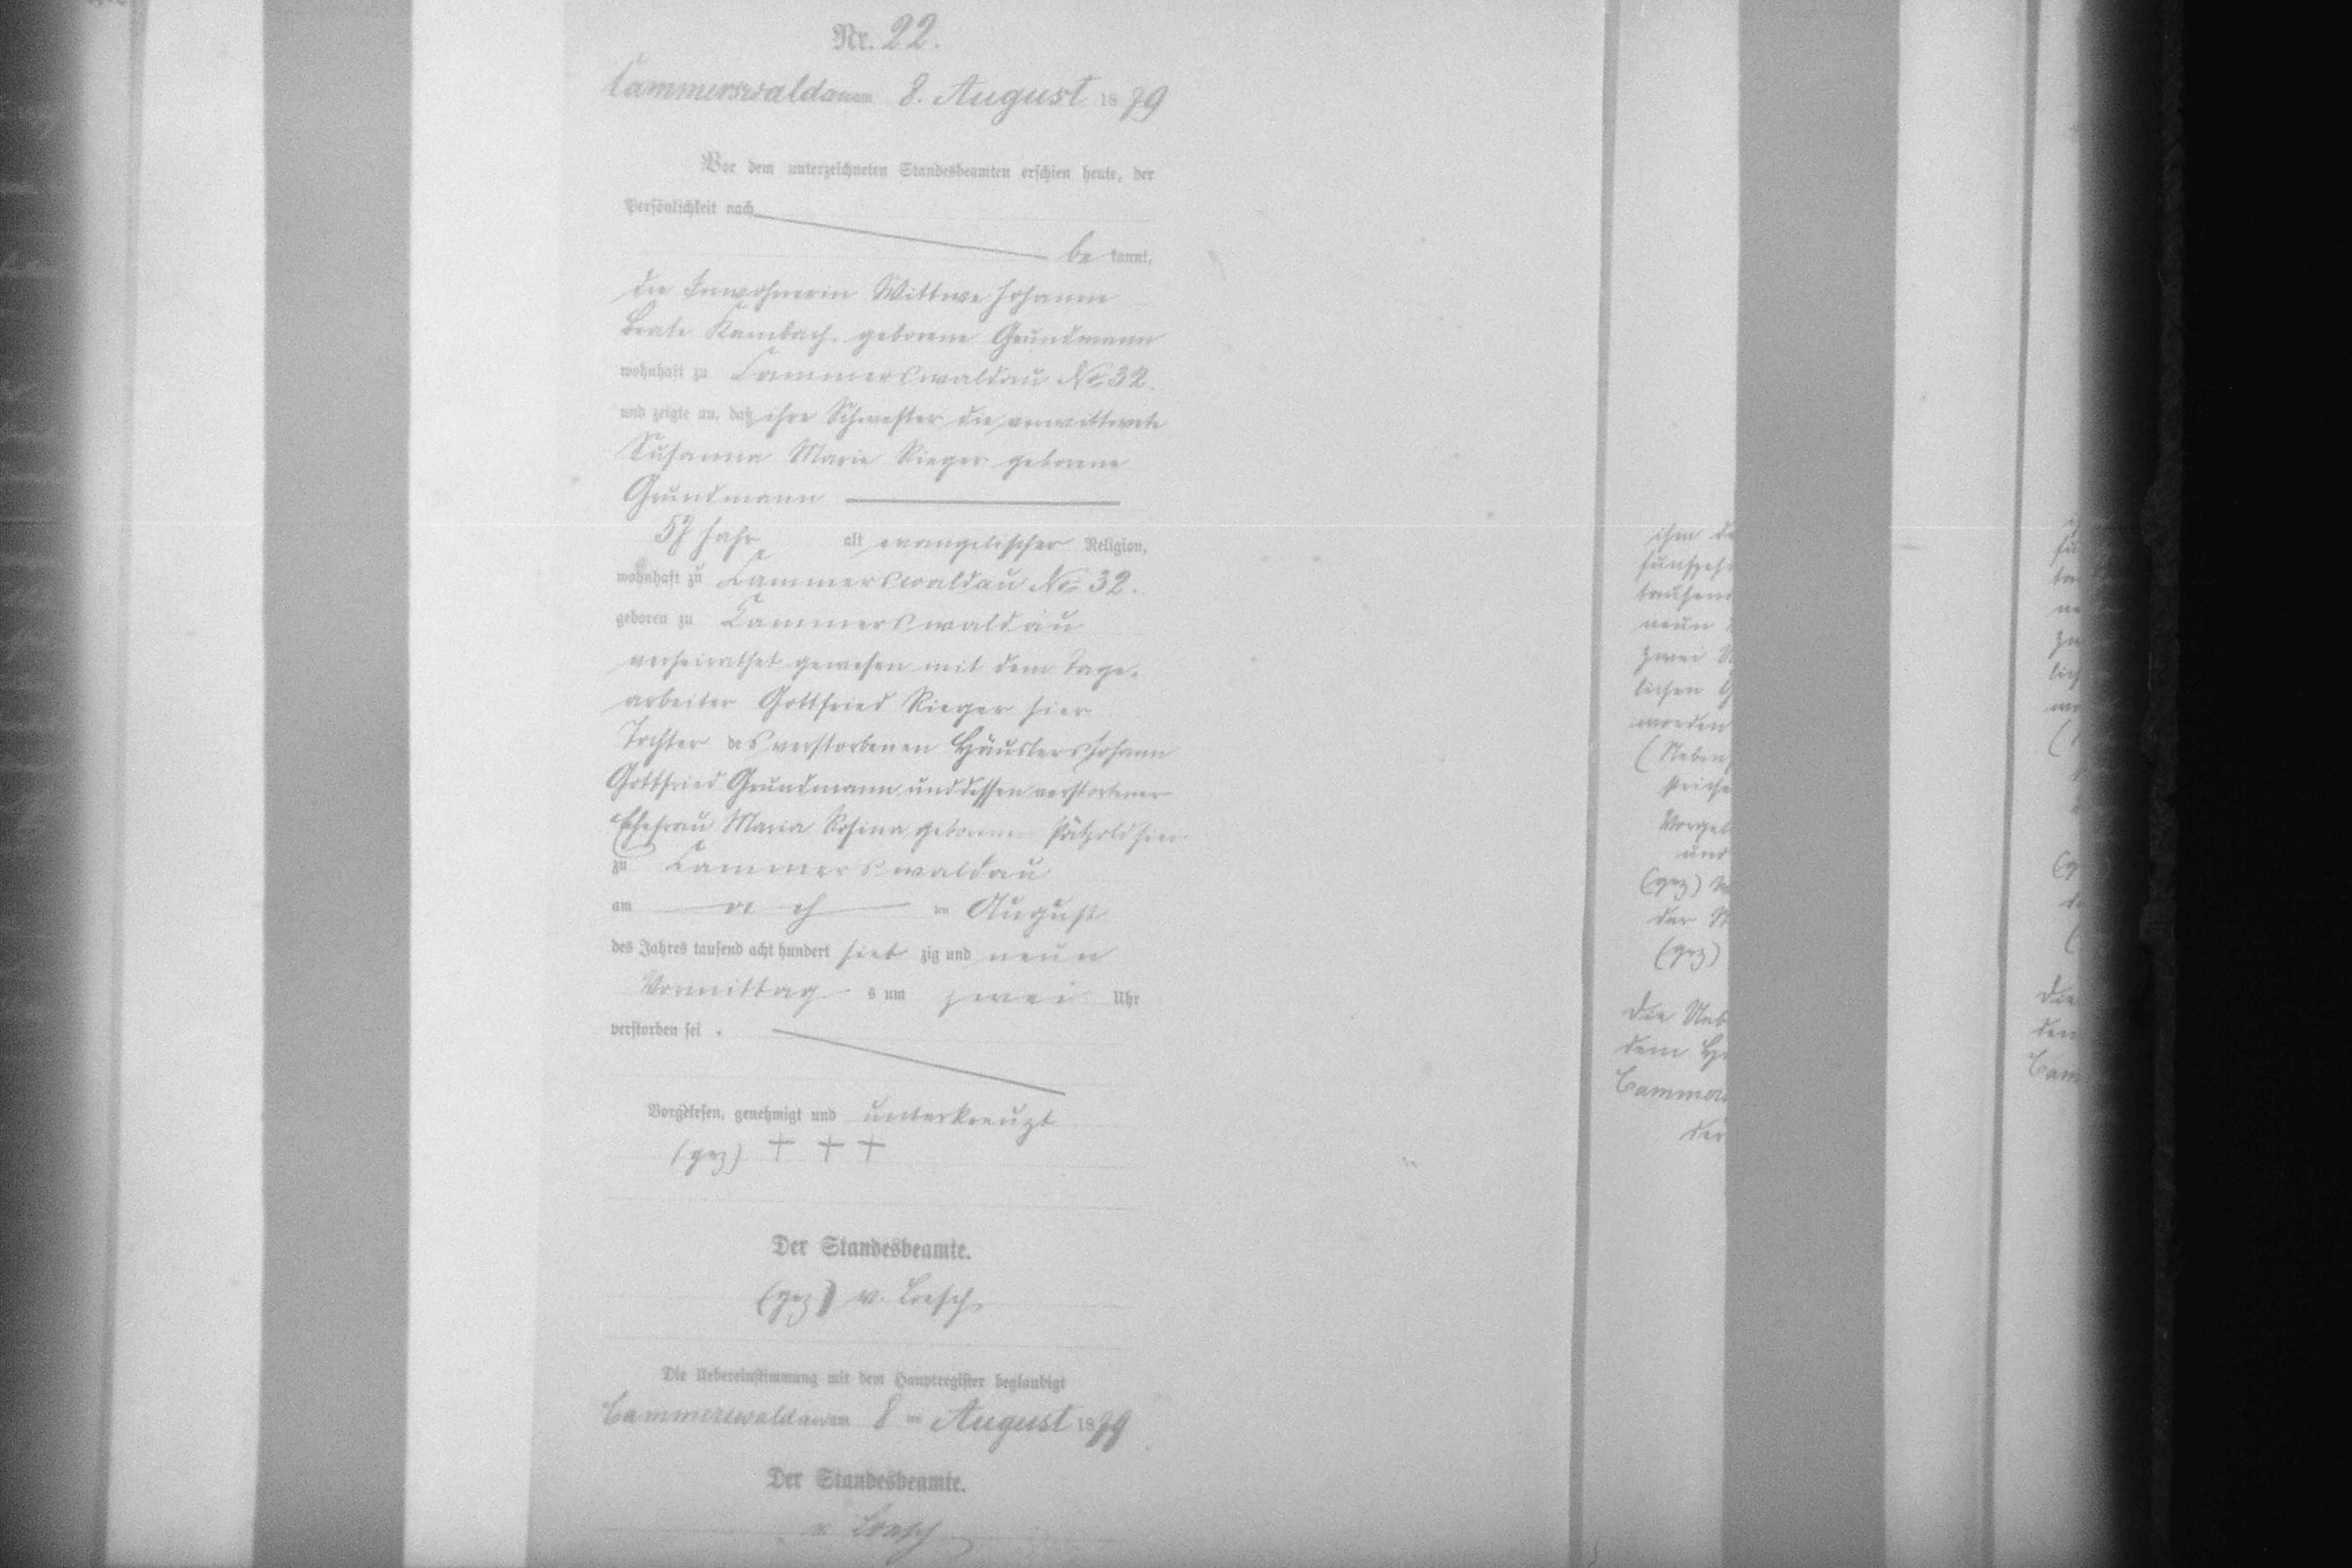 Nr. 22.
Cammerswaldau am 8. August 1879
Vor dem unterzeichneten Standesbeamten erschien heute, der
Persönlichkeit nach
be kannt,
die Inwohnerin Wittwe Johanne
Beate Kambach geborene Grundmann
wohnhaft zu Cammerswaldau No. 32.
und zeigte an, daß ihre Schwester die verwittwete
Susanna Marie Rieger geborene
Grundmann
57 Jahr alt evangelischer Religion,
wohnhaft zu Cammerswaldau No. 32.
geboren zu Cammerswaldau
verheirathet gewesen mit dem Tage-
arbeiter Gottfried Rieger hier
Tochter des verstorbenen Häuslers Johann
Gottfried Grundmann und dessen verstorbener
Ehefrau Maria Rosina geborenen Pätzold hier
zu Cammerswaldau
am ten August
des Jahres tausend acht hundert sieb zig und neun
Vormittag s um zwei Uhr
verstorben sei .
Vorgelesen, genehmigt und unterkreuzt
(gez) + + +
Der Standesbeamte.
(gez) v. Loesch.
Die Uebereinstimmung mit dem Hauptregister beglaubigt
Cammerswaldau am 8 ten August 1879
Der Standesbeamte.
v Loesch
ihm
fünfzeh
tausend
neun
zwei
lichen
worden
(Neben
striche
Vorgel
und
(gez)
der
(gez)
Die Ueb
dem
Cammers
der
Die
den
Cam